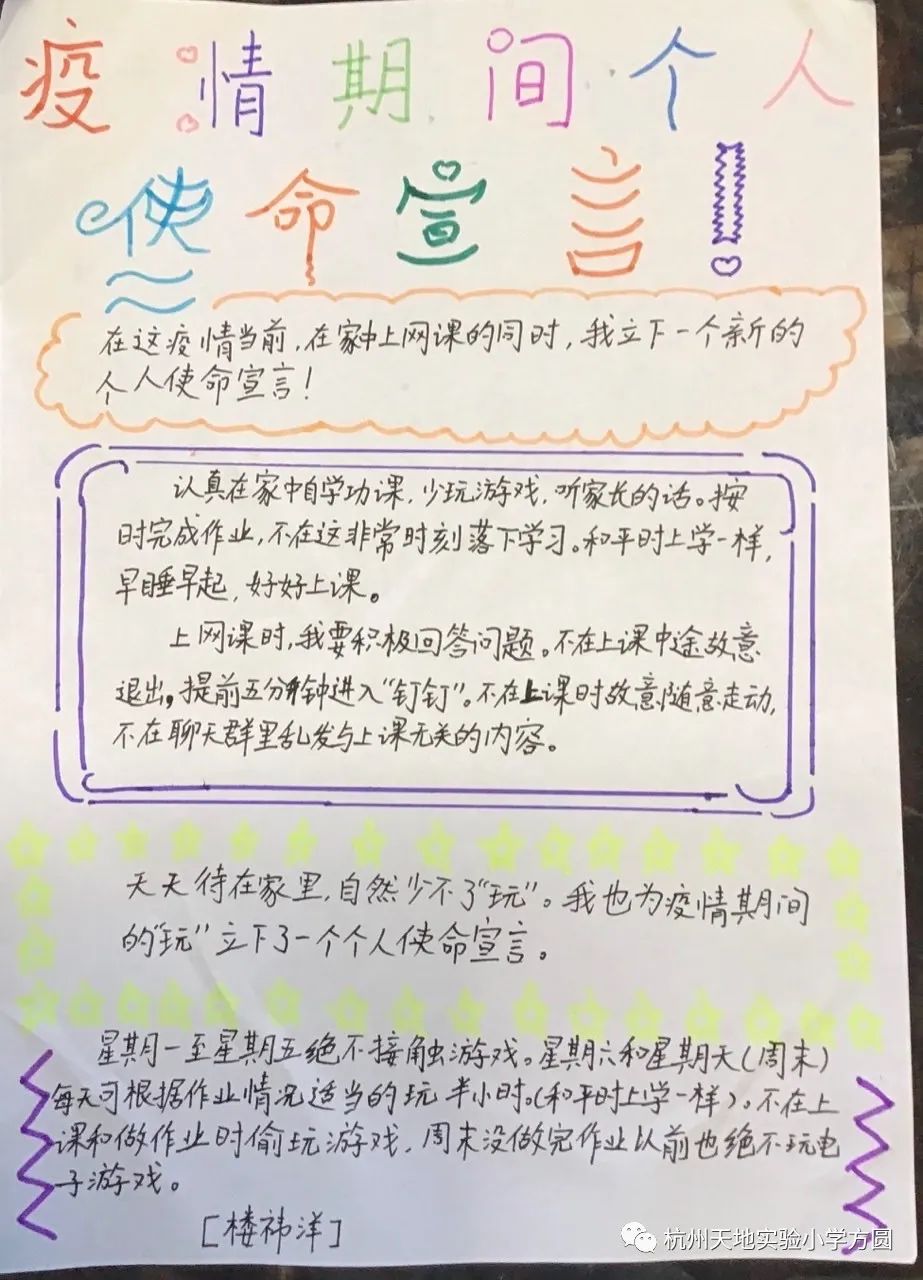 疫情期间个人
使命宣言！
在这疫情当前，在家中上网课的同时，我立下一个新的
个人使命宣言！
认真在家中自学功课，少玩游戏，听家长的话。按
时完成作业，不在这非常时刻落下学习。和平时上学一样，
早睡早起，好好上课。
上网课时，我要积极回答问题。不在上课中途故意
退出。提前五分钟进入“钉钉”。不在上课时故意随意走动，
不在聊天群里乱发与上课无关的内容。
天天待在家里，自然少不了“玩”。我也为疫情期间
的“玩”立下了一个个人使命宣言。
星期一至星期五绝不接触游戏。星期六和星期天（周末）
每天可根据作业情况适当的玩半小时。（和平时上学一样）。不在上
课和做作业时偷玩游戏，周末没做完作业以前也绝不玩电
子游戏。
[楼祎洋]
杭州天地实验小学方圆